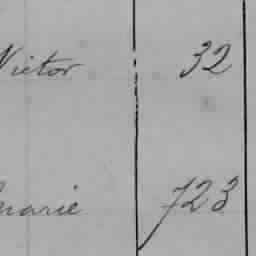 Victor 32
marie 723